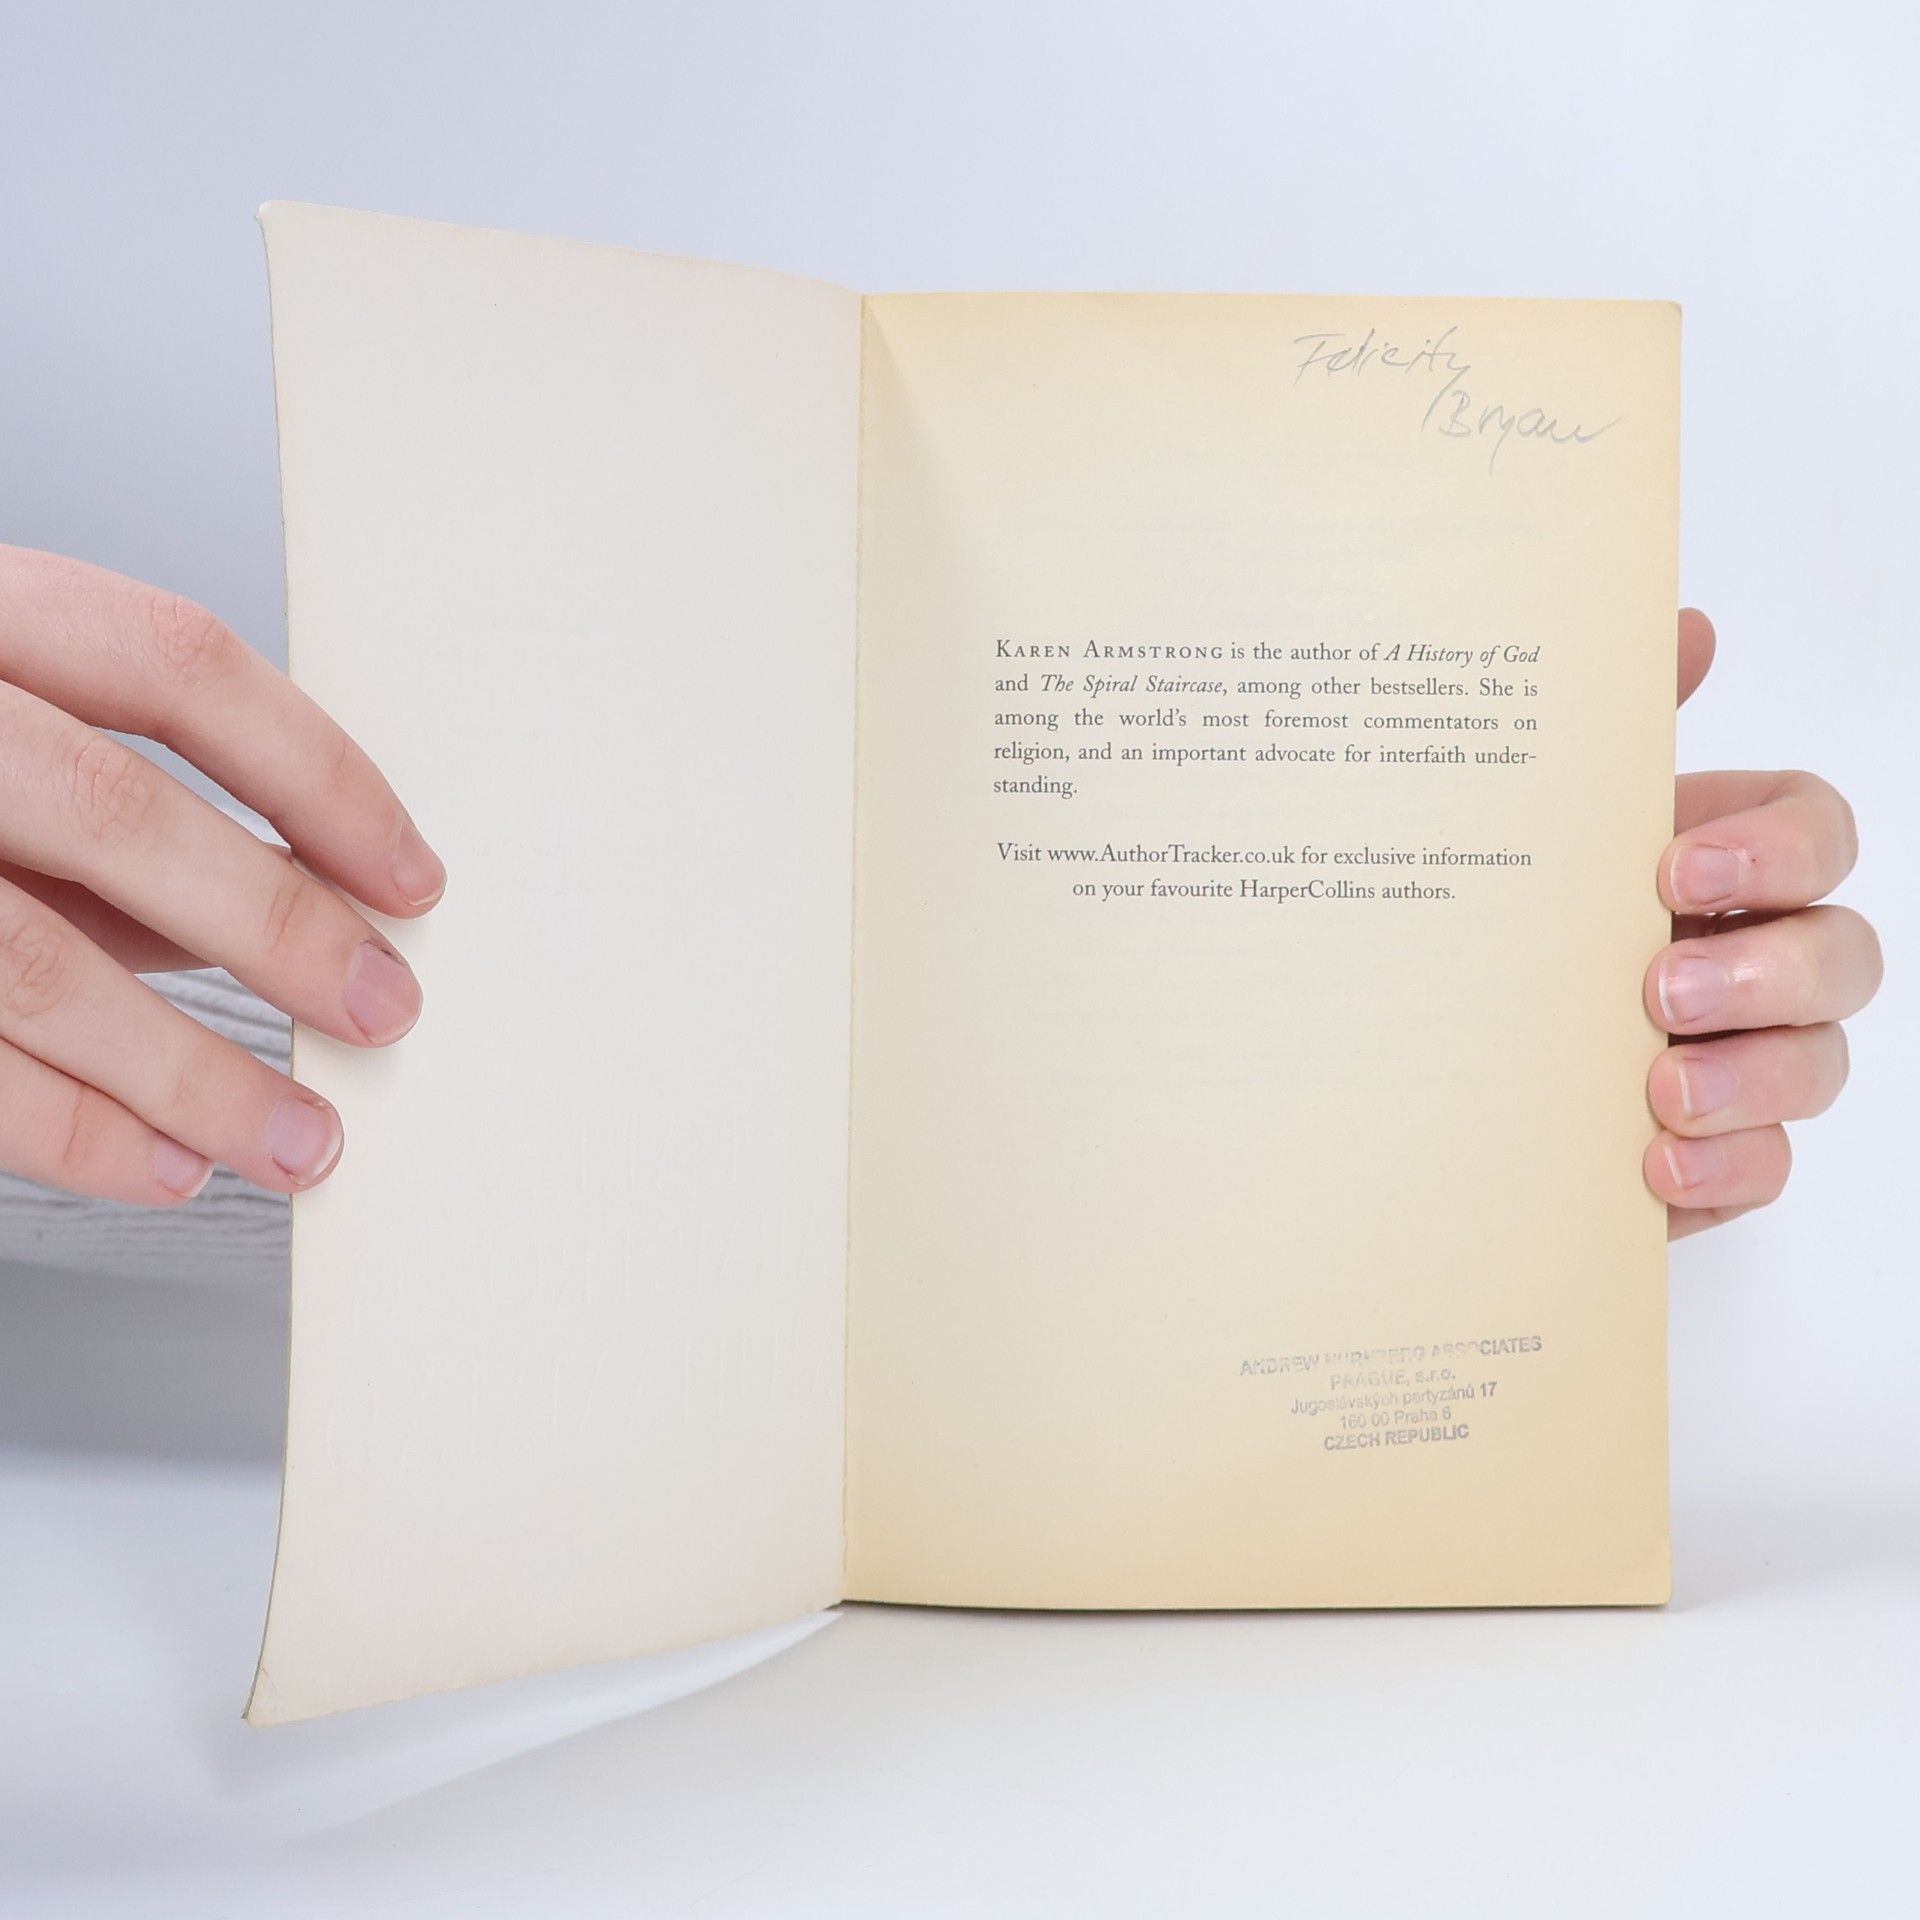 Felicity
Bryan
KAREN ARMSTRONG is the author of A History of God
and The Spiral Staircase, among other bestsellers. She is
among the world's most foremost commentators on
religion, and an important advocate for interfaith under-
standing.
Visit www.AuthorTracker.co.uk for exclusive information
on your favourite HarperCollins authors.
ANDREW NURNBERG ASSOCIATES
PRAGUE, s.r.o.
Jugoslávských partyzánů 17
160 00 Praha 6
CZECH REPUBLIC